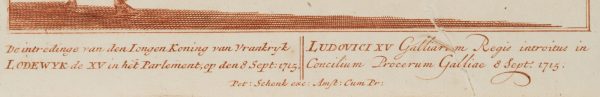 De intredinge van den Iongen Koning van Vrankryk,
LODEWYK de XV in hèt Parlement, op den 8 Sept: 1715.
LUDOVICI XV Galliarum Regis introitus in
Concilium Procerum Galliae 8 Sept: 1715:
Pet: Schenk exc: Amst: Cum Pr: